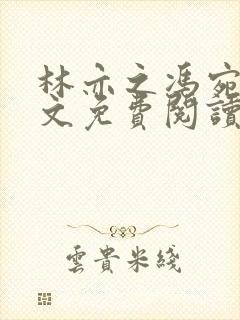 林亦之馮宛
文免費閱讀
雲貴米綫